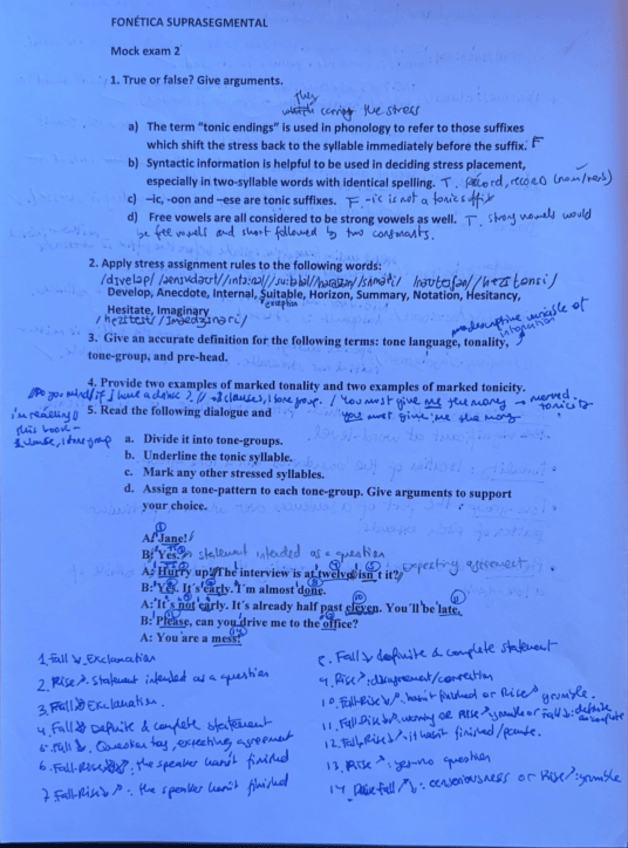 FONÉTICA SUPRASEGMENTAL
Mock exam 2
1. True or false? Give arguments.
they
carring the stress
a) The term “tonic endings” is used in phonology to refer to those suffixes
which shift the stress back to the syllable immediately before the suffix. F
b) Syntactic information is helpful to be used in deciding stress placement,
especially in two-syllable words with identical spelling. T. record, record (noun/verb)
c) –ic, -oon and –ese are tonic suffixes. F. -ic is not a tonic suffix
d) Free vowels are all considered to be strong vowels as well. T. strong vowels would
be free vowels and short followed by two consonants.
2. Apply stress assignment rules to the following words:
Develop, Anecdote, Internal, Suitable, Horizon, Summary, Notation, Hesitancy,
exception
Hesitate, Imaginary
variable of
intonation
3. Give an accurate definition for the following terms: tone language, tonality,
tone-group, and pre-head.
4. Provide two examples of marked tonality and two examples of marked tonicity.
Do you mind/if I have a drink?// → 2 clauses, 1 tone group. / You must give me the money → marked
tonicity
you must give me the money
i'm reading
this book -
1 clause, 1 tone group
5. Read the following dialogue and
a. Divide it into tone-groups.
b. Underline the tonic syllable.
c. Mark any other stressed syllables.
d. Assign a tone-pattern to each tone-group. Give arguments to support
your choice.
A: Jane!
B: Yes. statement intended as a question
A: Hurry up! The interview is at twelve, isn't it? expecting agreement
B: Yes. It's early. I'm almost done.
A: It's not early. It's already half past eleven. You'll be late.
B: Please, can you drive me to the office?
A: You are a mess!
1. Fall ↘. Exclamation
2. Rise ↗. Statement intended as a question
3. Fall ↘ Exclamation.
4. Fall ↘ Definite & complete statement
5. Fall ↘. Question tag, expecting agreement
6. Fall-Rise ↘↗: the speaker hasn't finished
7. Fall-Rise ↘↗: the speaker hasn't finished
8. Fall ↘ definite & complete statement
9. Rise ↗: disagreement/correction
10. Fall-Rise ↘↗: hasn't finished or Rise ↗ grumble.
11. Fall-Rise ↘↗: warning or Rise ↗ grumble or Fall ↘: definite & complete
12. Fall-Rise ↘↗: it hasn't finished/pause.
13. Rise ↗: yes-no question
14. Rise Fall ↗↘: censoriousness or Rise ↗: grumble